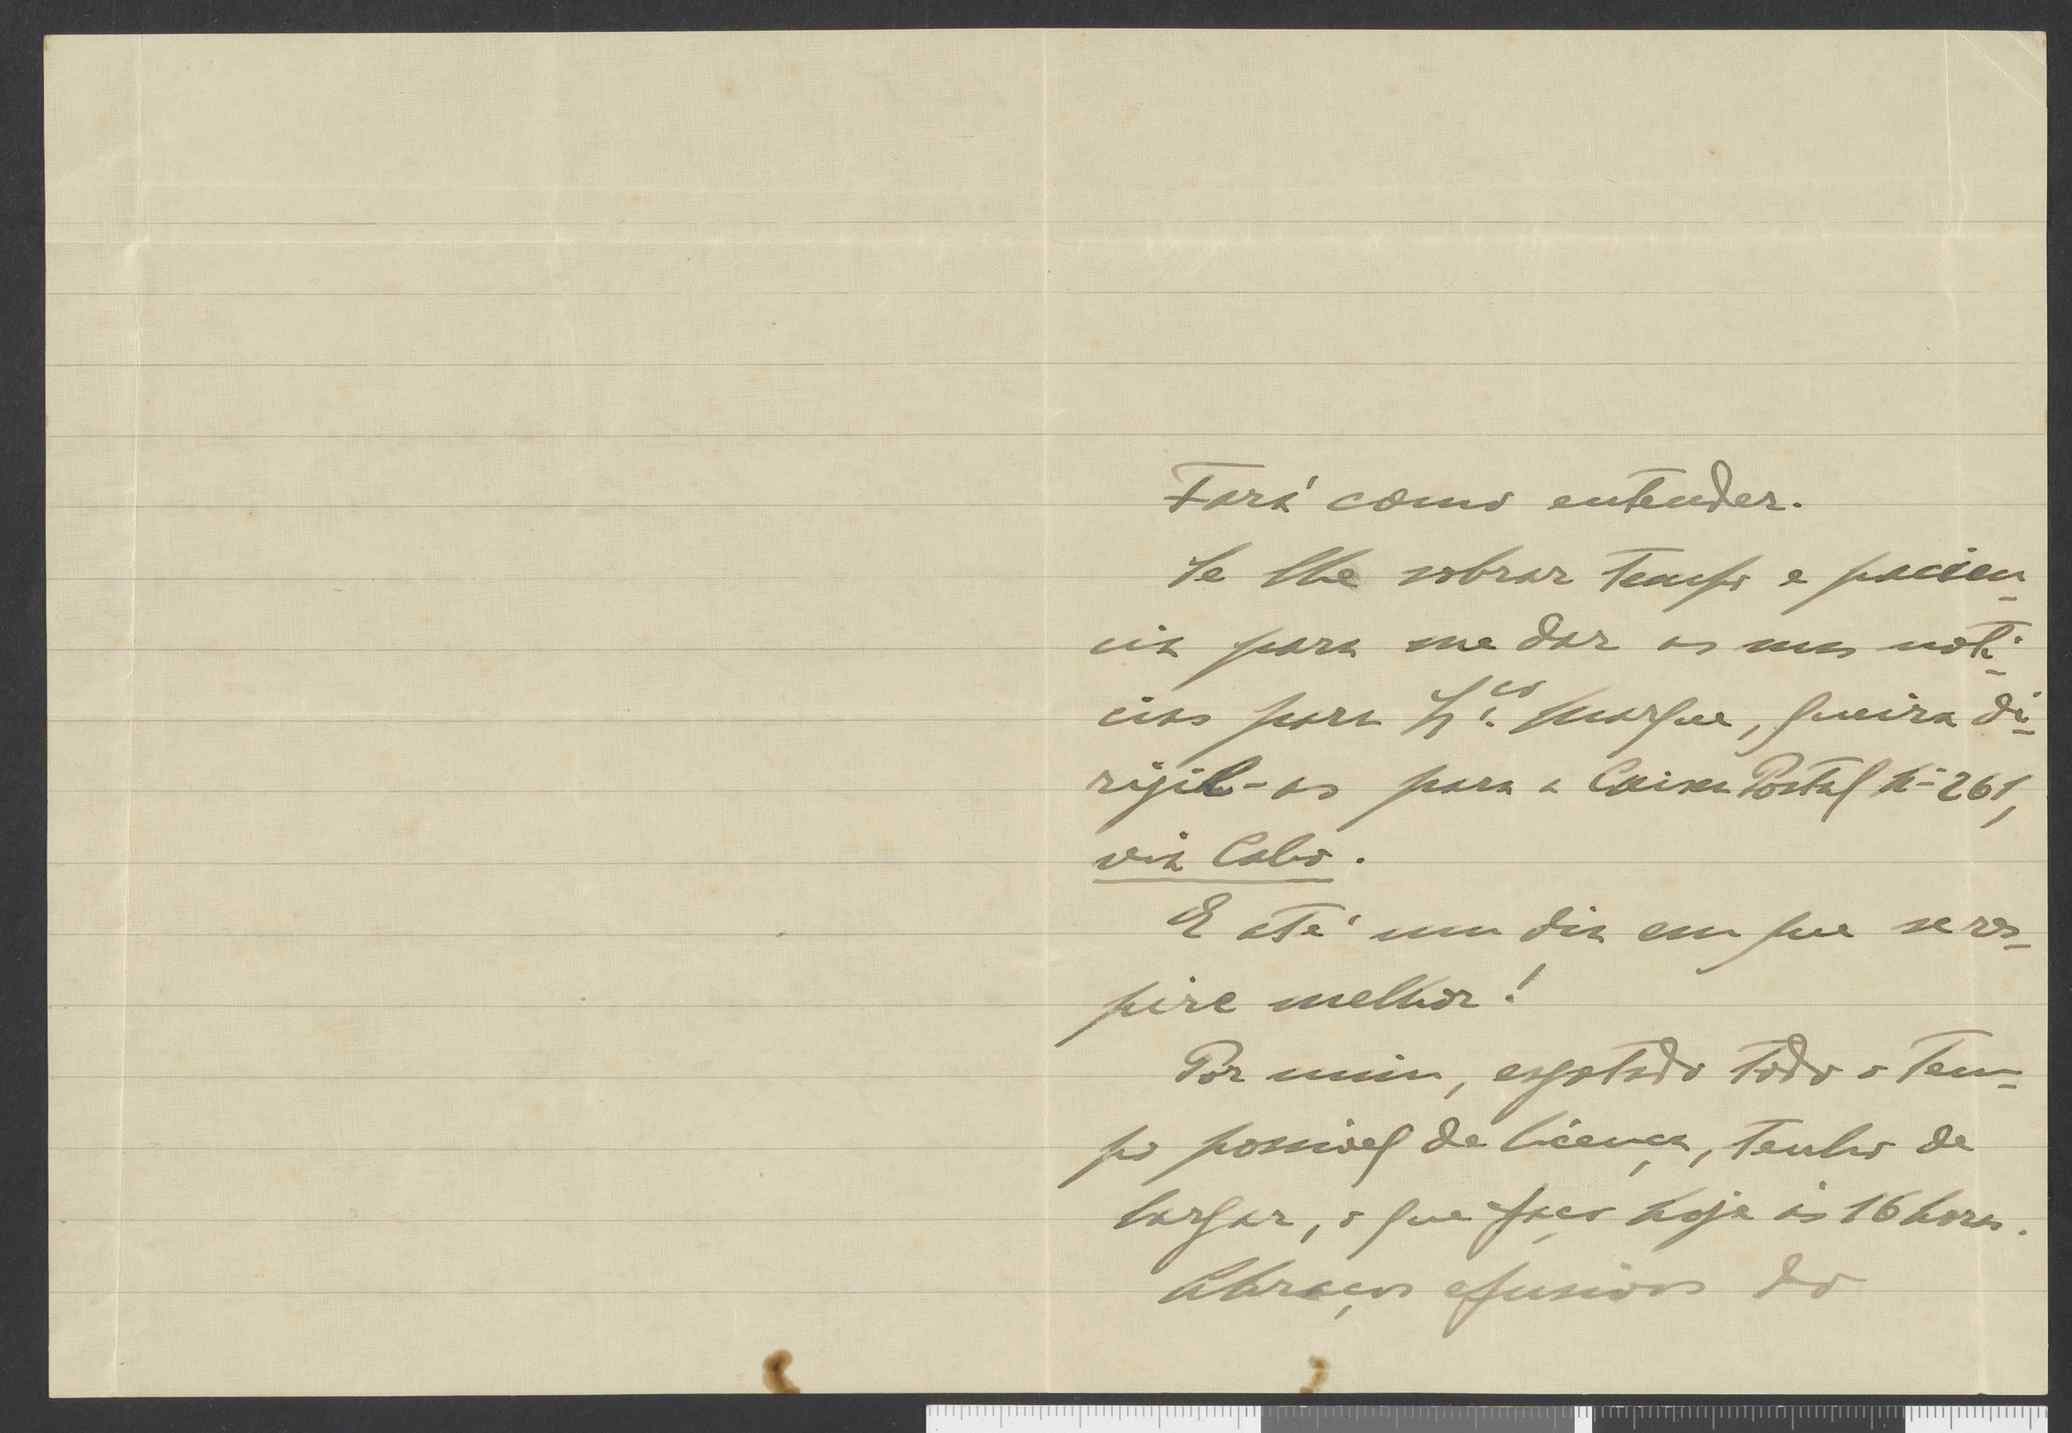 Fará como entender.
Se lhe sobrar tempo e pacien-
cia para me dar as suas noti-
cias para L.ço Marques, queira di-
rigil-as para a Caixa Postal Nº 261,
via Cabo.
E até um dia em que se res-
pire melhor!
Por mim, esgotado todo o tem-
po possivel de licença, tenho de
largar, o que faço hoje ás 16 horas.
Abraços efusivos do